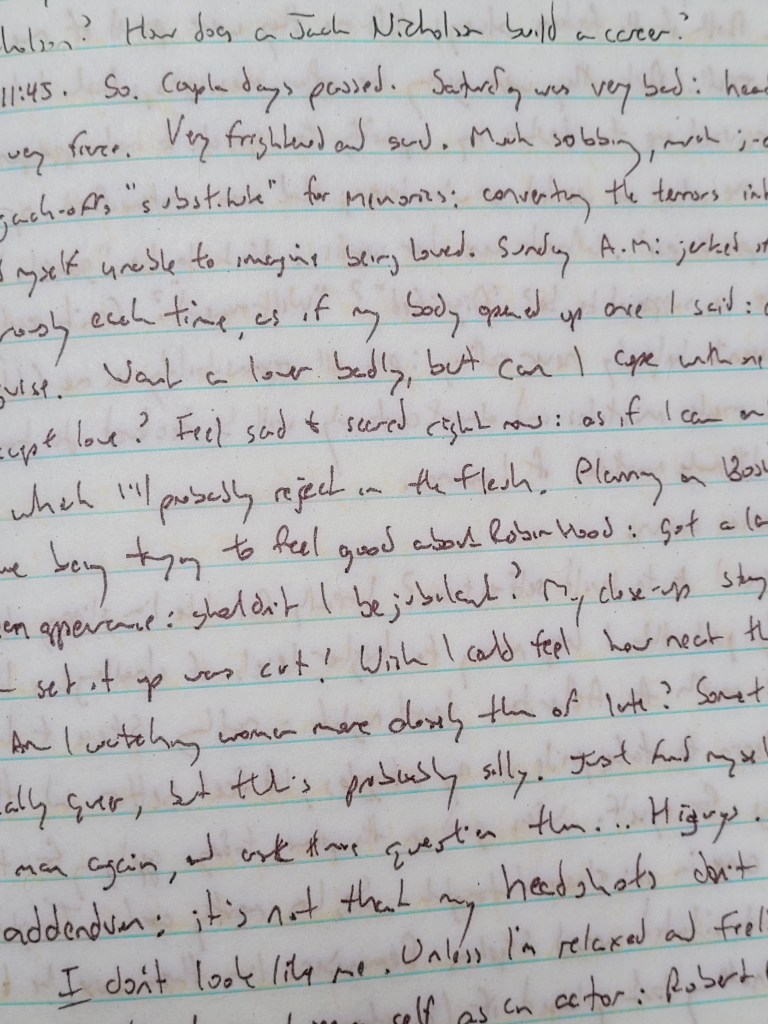 How does a Jack Nicholson build a career?
11:45. So. Coupla days passed. Saturday was very bad: head
very fierce. Very frightened and sad. Much sobbing, much
"substitute" for memories: converting the terrors
myself unable to imagine being loved. Sunday A.M: jerked
each time, as if my body opened up once I said:
Want a lover badly, but can I cope with one
love? Feel sad & scared right now: as if I can
which I'll probably reject in the flesh. Planning on
been trying to feel good about Robin Hood: got a
appearance: shouldn't I be jubilant? My close-up
set it up was cut! Wish I could feel how neat
Am I watching women more closely than of late?
queer, but that's probably silly. Just find myself
man again, and ask the question then... Hi guys.
addendum: it's not that my headshots don't
I don't look like me. Unless I'm relaxed and
self as an actor: Robert